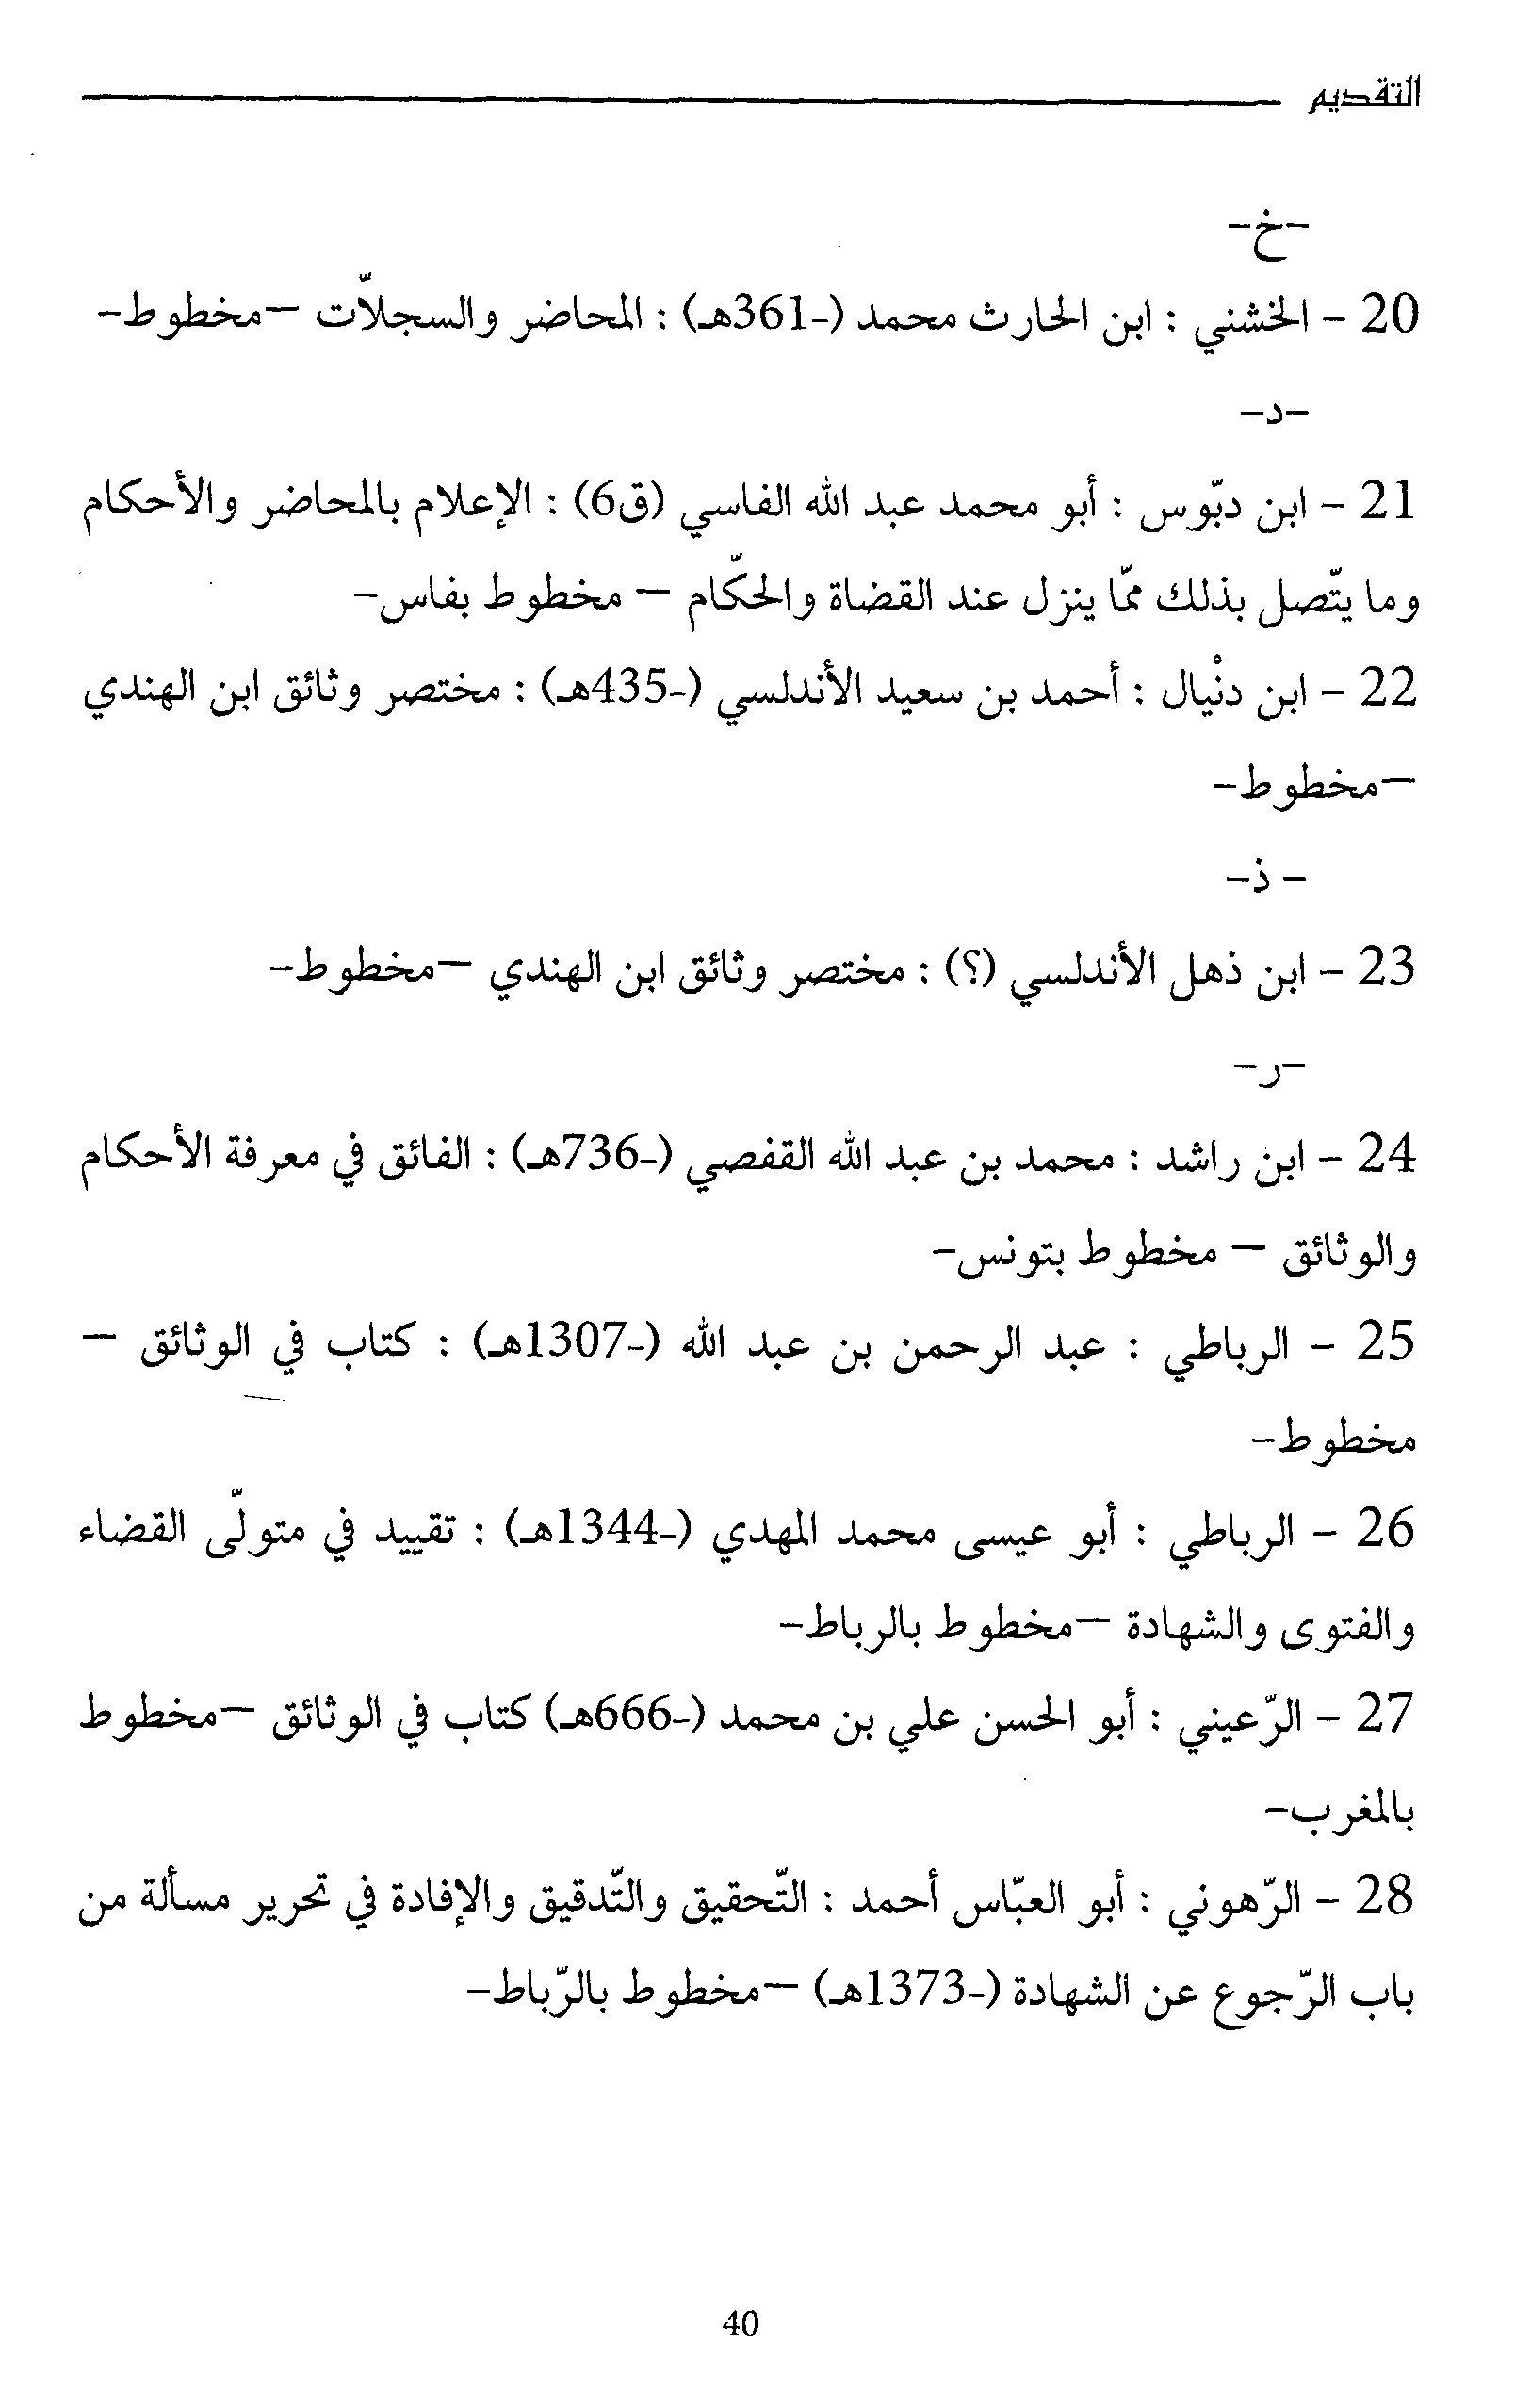 التقديم
-خ-
20 - الخشني : ابن الحارث محمد (-361هـ) : المحاضر والسجلاّت –مخطوط-
-د-
21 - ابن دبّوس : أبو محمد عبد الله الفاسي (ق6) : الإعلام بالمحاضر والأحكام
وما يتّصل بذلك ممّا ينزل عند القضاة والحكّام – مخطوط بفاس-
22 - ابن دنْيال : أحمد بن سعيد الأندلسي (-435هـ) : مختصر وثائق ابن الهندي
–مخطوط-
- ذ-
23 - ابن ذهل الأندلسي (؟) : مختصر وثائق ابن الهندي –مخطوط-
-ر-
24 - ابن راشد : محمد بن عبد الله القفصي (-736هـ) : الفائق في معرفة الأحكام
والوثائق – مخطوط بتونس-
25 - الرباطي : عبد الرحمن بن عبد الله (-1307هـ) : كتاب في الوثائق –
مخطوط-
26 - الرباطي : أبو عيسى محمد المهدي (-1344هـ) : تقييد في متولّى القضاء
والفتوى والشهادة –مخطوط بالرباط-
27 - الرّعيني : أبو الحسن علي بن محمد (-666هـ) كتاب في الوثائق –مخطوط
بالمغرب-
28 - الرّهوني : أبو العبّاس أحمد : التّحقيق والتّدقيق والإفادة في تحرير مسألة من
باب الرّجوع عن الشهادة (-1373هـ) –مخطوط بالرّباط-
40